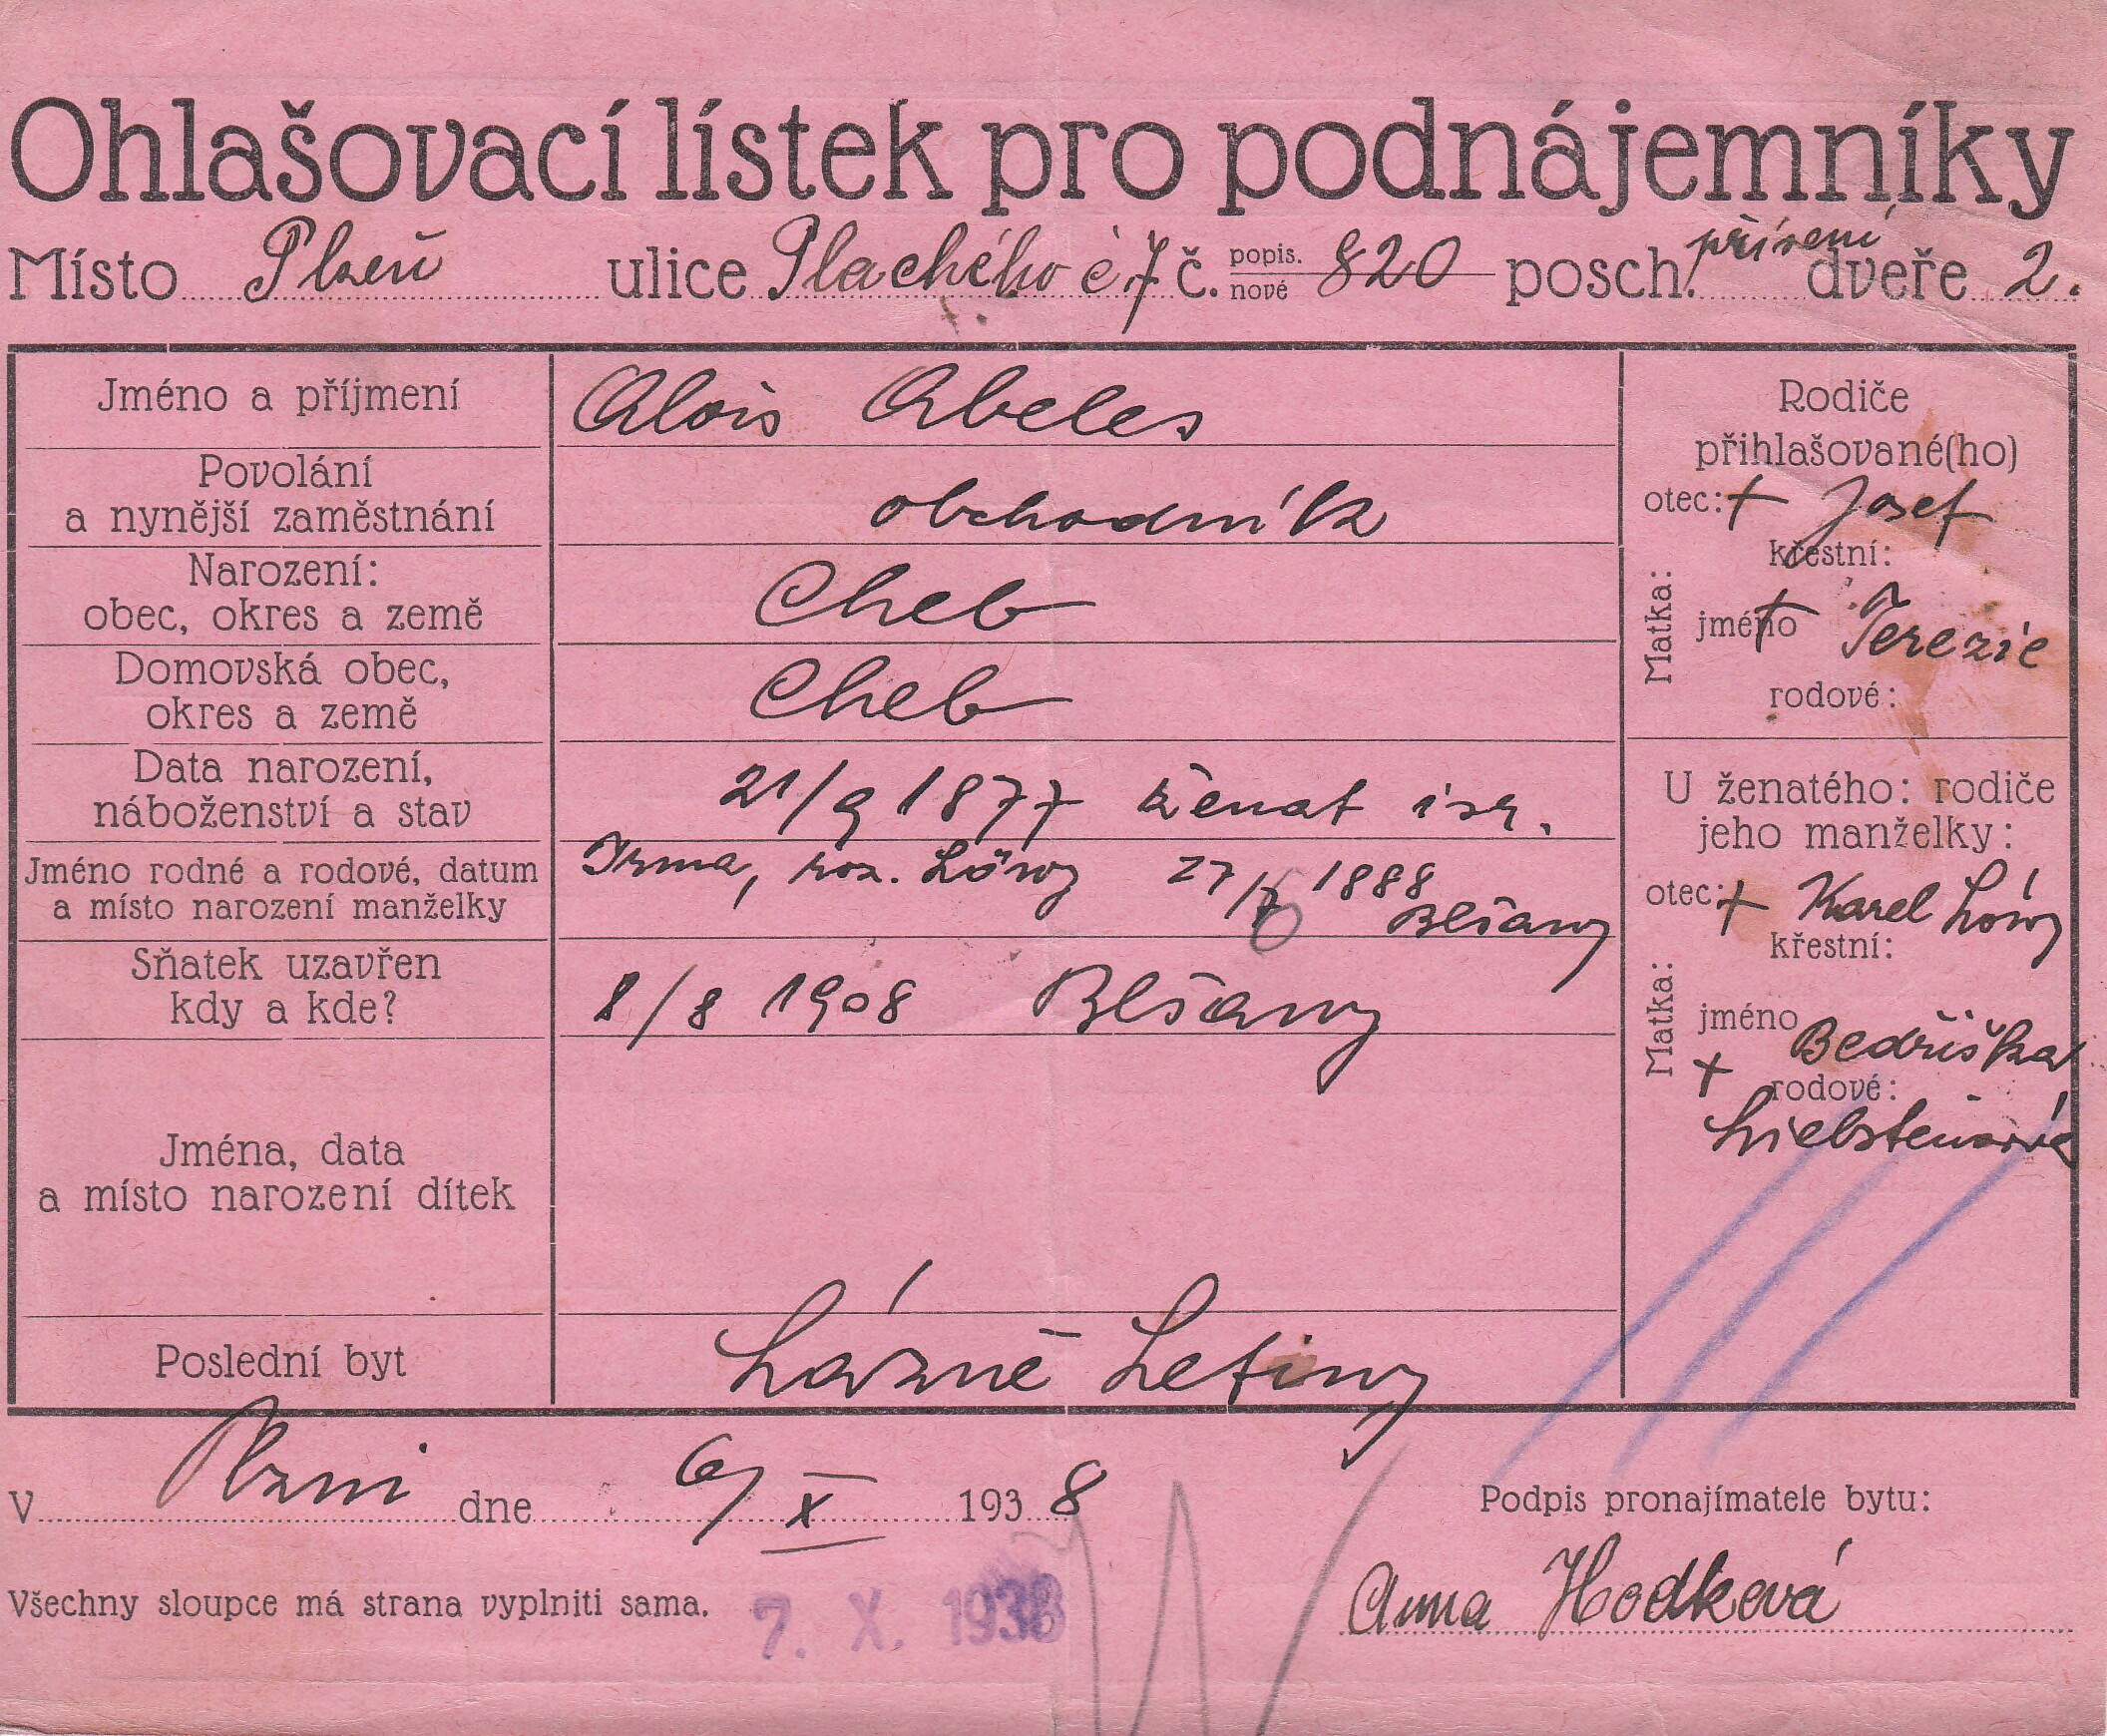 Ohlašovací lístek pro podnájemníky
Místo Plzeň ulice Plachého č 7 č. popis. nové 820 posch. přízení dveře 2.
Jméno a příjmení Alois Abeles
Povolání
a nynější zaměstnání obchodník
Narození:
obec, okres a země Cheb
Domovská obec,
okres a země Cheb
Data narození,
náboženství a stav 21/9 1877 ženat isr.
Jméno rodné a rodové, datum
a místo narození manželky Irma, roz. Löwy 27/6 1888 Blšany
Sňatek uzavřen
kdy a kde? 8/8 1908 Blšany
Jména, data
a místo narození dítek
Poslední byt Lázně Letiny
Rodiče
přihlašované(ho)
otec: + Josef
křestní:
Matka: jméno + Terezie
rodové:
U ženatého: rodiče
jeho manželky:
otec: + Karel Löwy
křestní:
Matka: jméno Bedřiška
+ rodové:
V Plzni dne 6/X 1938
Podpis pronajímatele bytu:
Všechny sloupce má strana vyplniti sama.
7. X. 1938
Anna Hodková